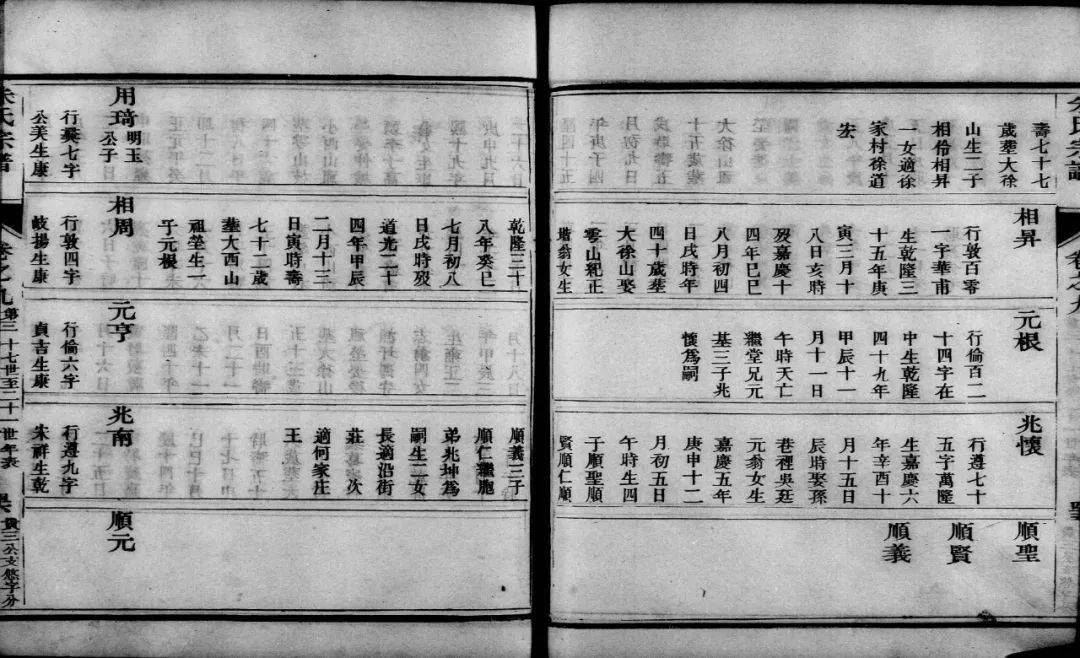 壽七十七
歲塟大徐
山生二子
相伶相昇
一女適徐
家村徐道
宏
相昇
行敦百零
一字華甫
生乾隆三
十五年庚
寅三月十
八日亥時
歿嘉慶十
四年巳巳
八月初四
日戌時年
四十歲塟
大徐山娶
雩山紀正
堦翁女生
元根
行倫百二
十四字在
中生乾隆
四十九年
甲辰十一
月十一日
午時夭亡
繼堂兄元
基三子兆
懷爲嗣
兆懷
行遵七十
五字萬隆
生嘉慶六
年辛酉十
月十五日
辰時娶孫
巷裡吳廷
元翁女生
嘉慶五年
庚申十二
月初五日
午時生四
子順聖順
賢順仁順
順聖
順賢
順義
用琦 明玉公子
行彛七字
公美生康
乾隆三十
八年癸巳
七月初八
日戌時歿
道光二十
四年甲辰
二月十三
日寅時壽
七十二歲
塟大西山
祖塋生一
子元根
相周
行敦四字
岐揚生康
元亨
行倫六字
貞吉生康
順義三子
順仁繼胞
弟兆坤爲
嗣生二女
長適沿街
莊 次
適何家庄
王
兆南
行遵九字
朱祥生乾
順元
氏宗譜 卷之九 第三十七世至二十一世年表 三公支悠字分